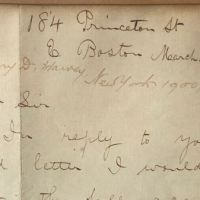 184 Princeton St
E Boston March
y D. Harvey
New York 1900
Sir
In reply to yo
letter I would